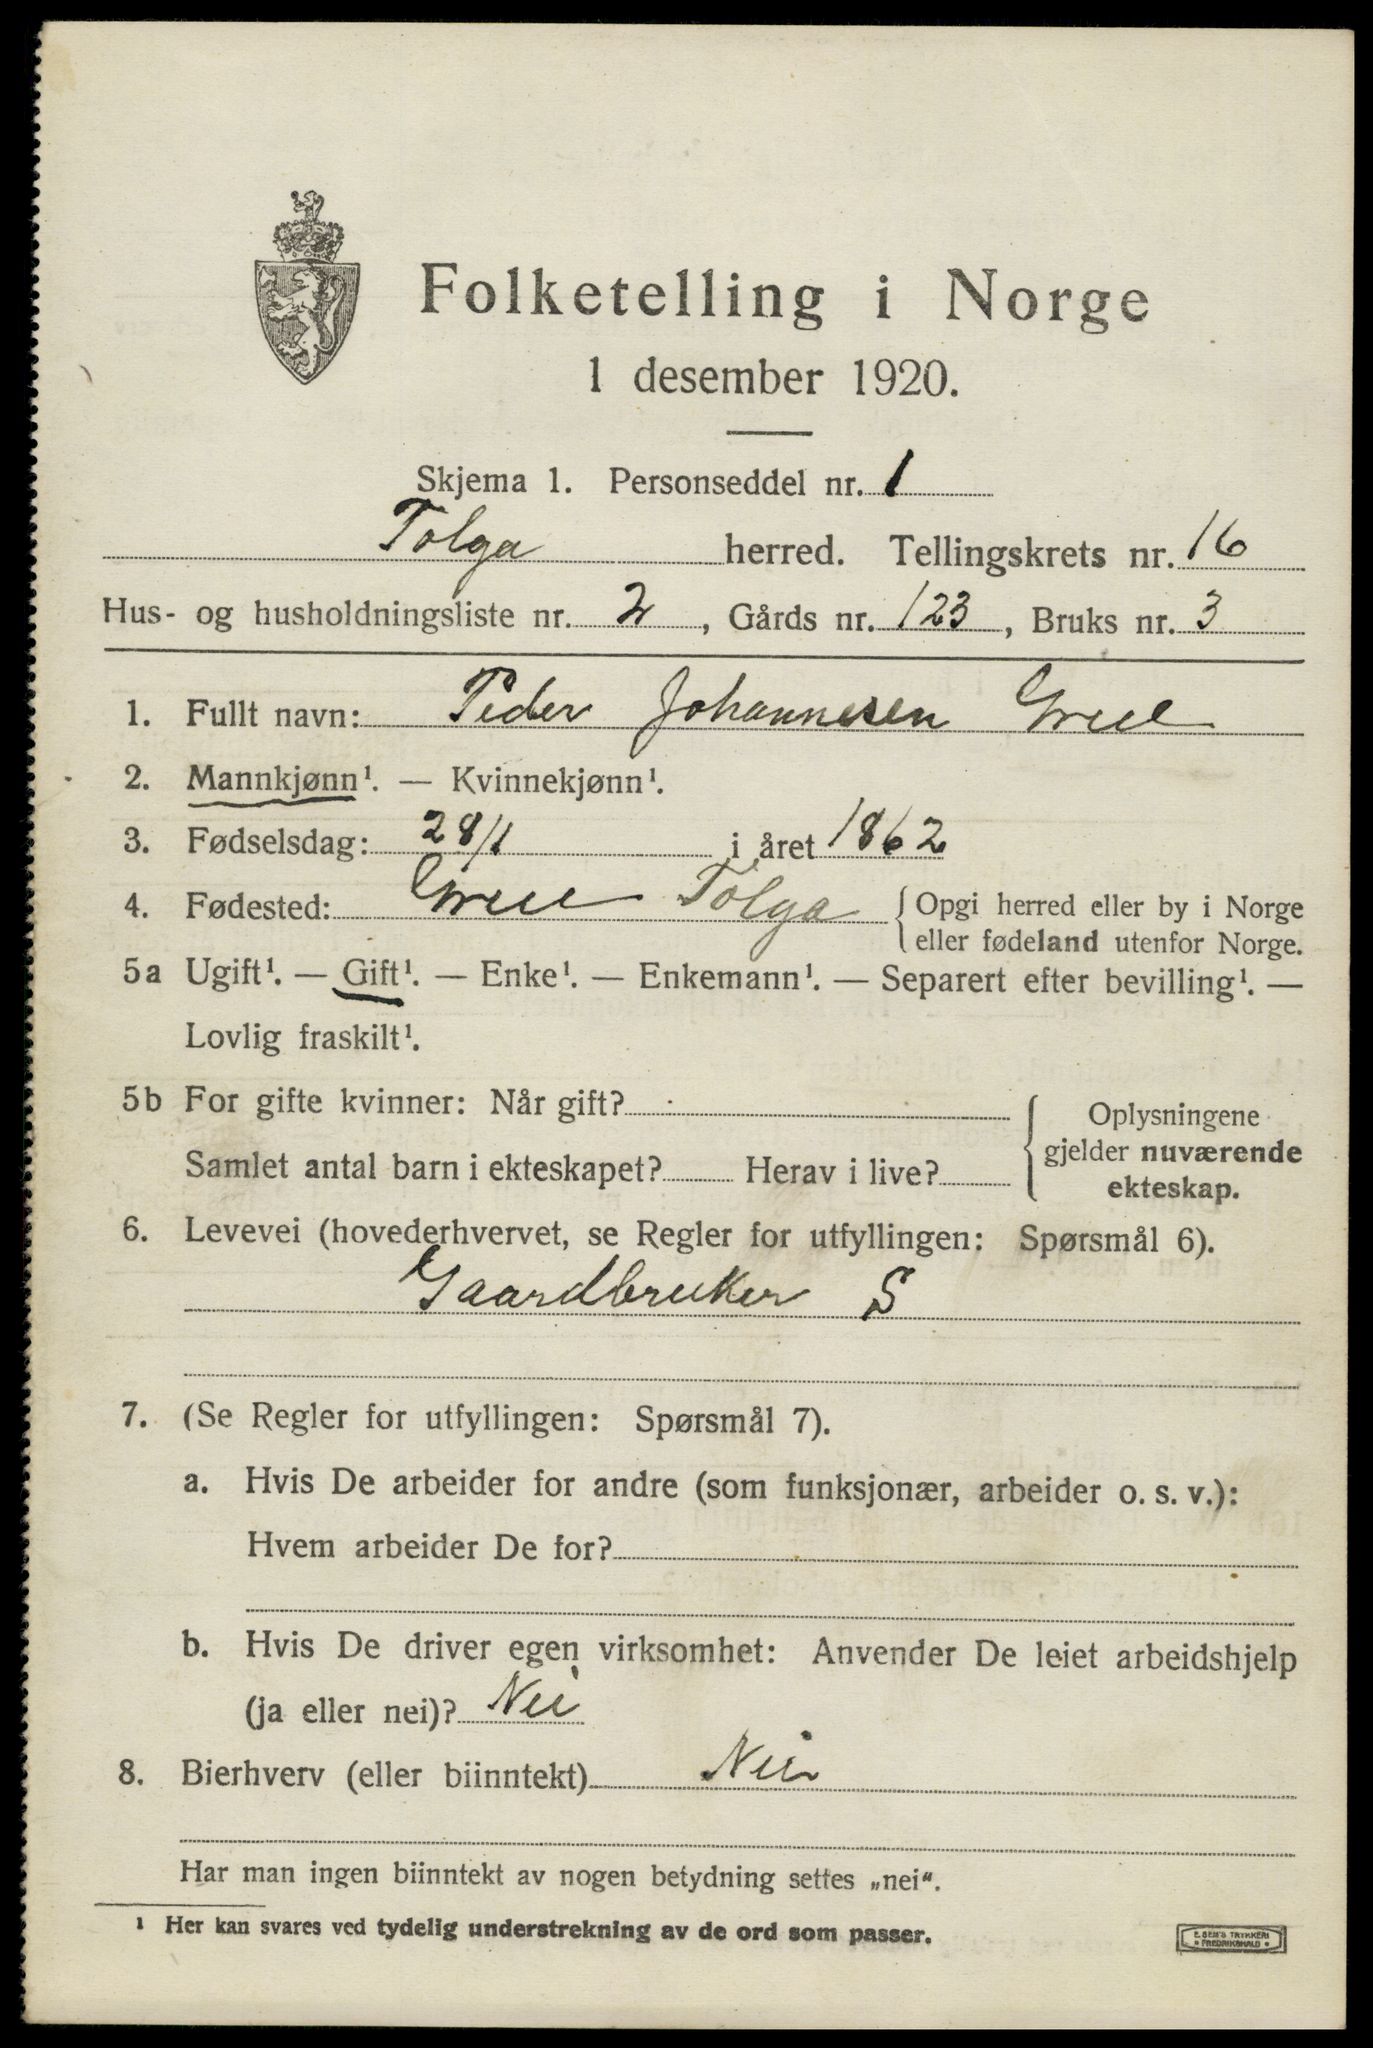 Folketelling i Norge
1 desember 1920.
Skjema 1. Personseddel nr. 1
Tolga herred. Tellingskrets nr. 16
Hus- og husholdningsliste nr. 2, Gårds nr. 123, Bruks nr. 3
1. Fullt navn: Peder Johannesen
2. Mannkjønn¹. — Kvinnekjønn¹.
3. Fødselsdag: 28/1 i året 1862
4. Fødested: Tolga { Opgi herred eller by i Norge
eller fødeland utenfor Norge.
5a Ugift¹. — Gift¹. — Enke¹. — Enkemann¹. — Separert efter bevilling¹. —
Lovlig fraskilt¹.
5b For gifte kvinner: Når gift?
Samlet antal barn i ekteskapet? Herav i live?
{ Oplysningene
gjelder nuværende
ekteskap.
6. Levevei (hovederhvervet, se Regler for utfyllingen: Spørsmål 6).
Gaardbruker S
7. (Se Regler for utfyllingen: Spørsmål 7).
a. Hvis De arbeider for andre (som funksjonær, arbeider o. s. v.):
Hvem arbeider De for?
b. Hvis De driver egen virksomhet: Anvender De leiet arbeidshjelp
(ja eller nei)? Nei
8. Bierhverv (eller biinntekt) Nei
Har man ingen biinntekt av nogen betydning settes „nei“.
¹ Her kan svares ved tydelig understrekning av de ord som passer.
E. SEM'S TRYKKERI
• FREDRIKSHALD •